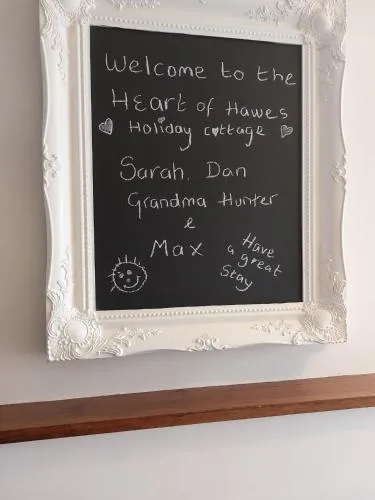 Welcome to the
Heart of Hawes
Holiday cottage
Sarah, Dan
Grandma Hunter
e
Max
Have
a great
Stay